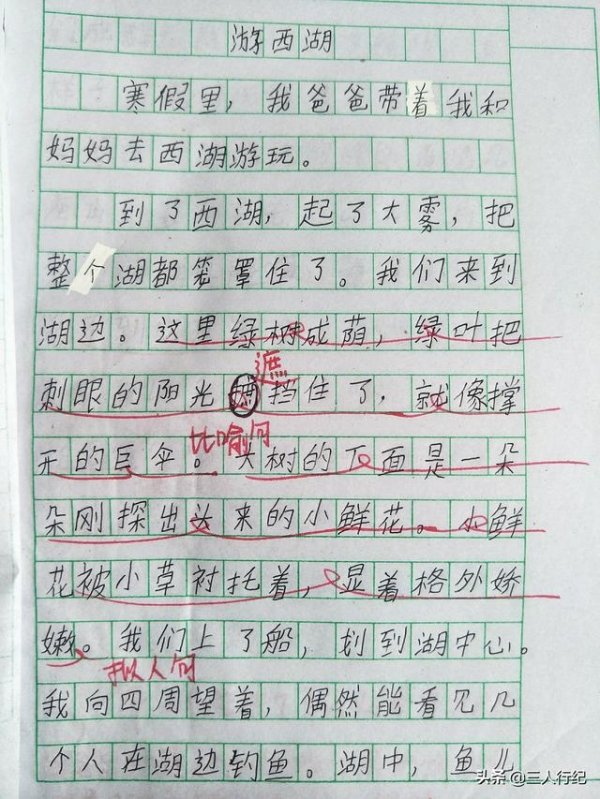 游西湖
寒假里，我爸爸带着我和
妈妈去西湖游玩。
到了西湖，起了大雾，把
整个湖都笼罩住了。我们来到
湖边。这里绿树成荫，绿叶把
遮
刺眼的阳光挡住了，就像撑
比喻句
开的巨伞。大树的下面是一朵
朵刚探出头来的小鲜花。小鲜
花被小草衬托着，显着格外娇
嫩。我们上了船，划到湖中心。
拟人句
我向四周望着，偶然能看见几
个人在湖边钓鱼。湖中，鱼儿
头条@三人行纪